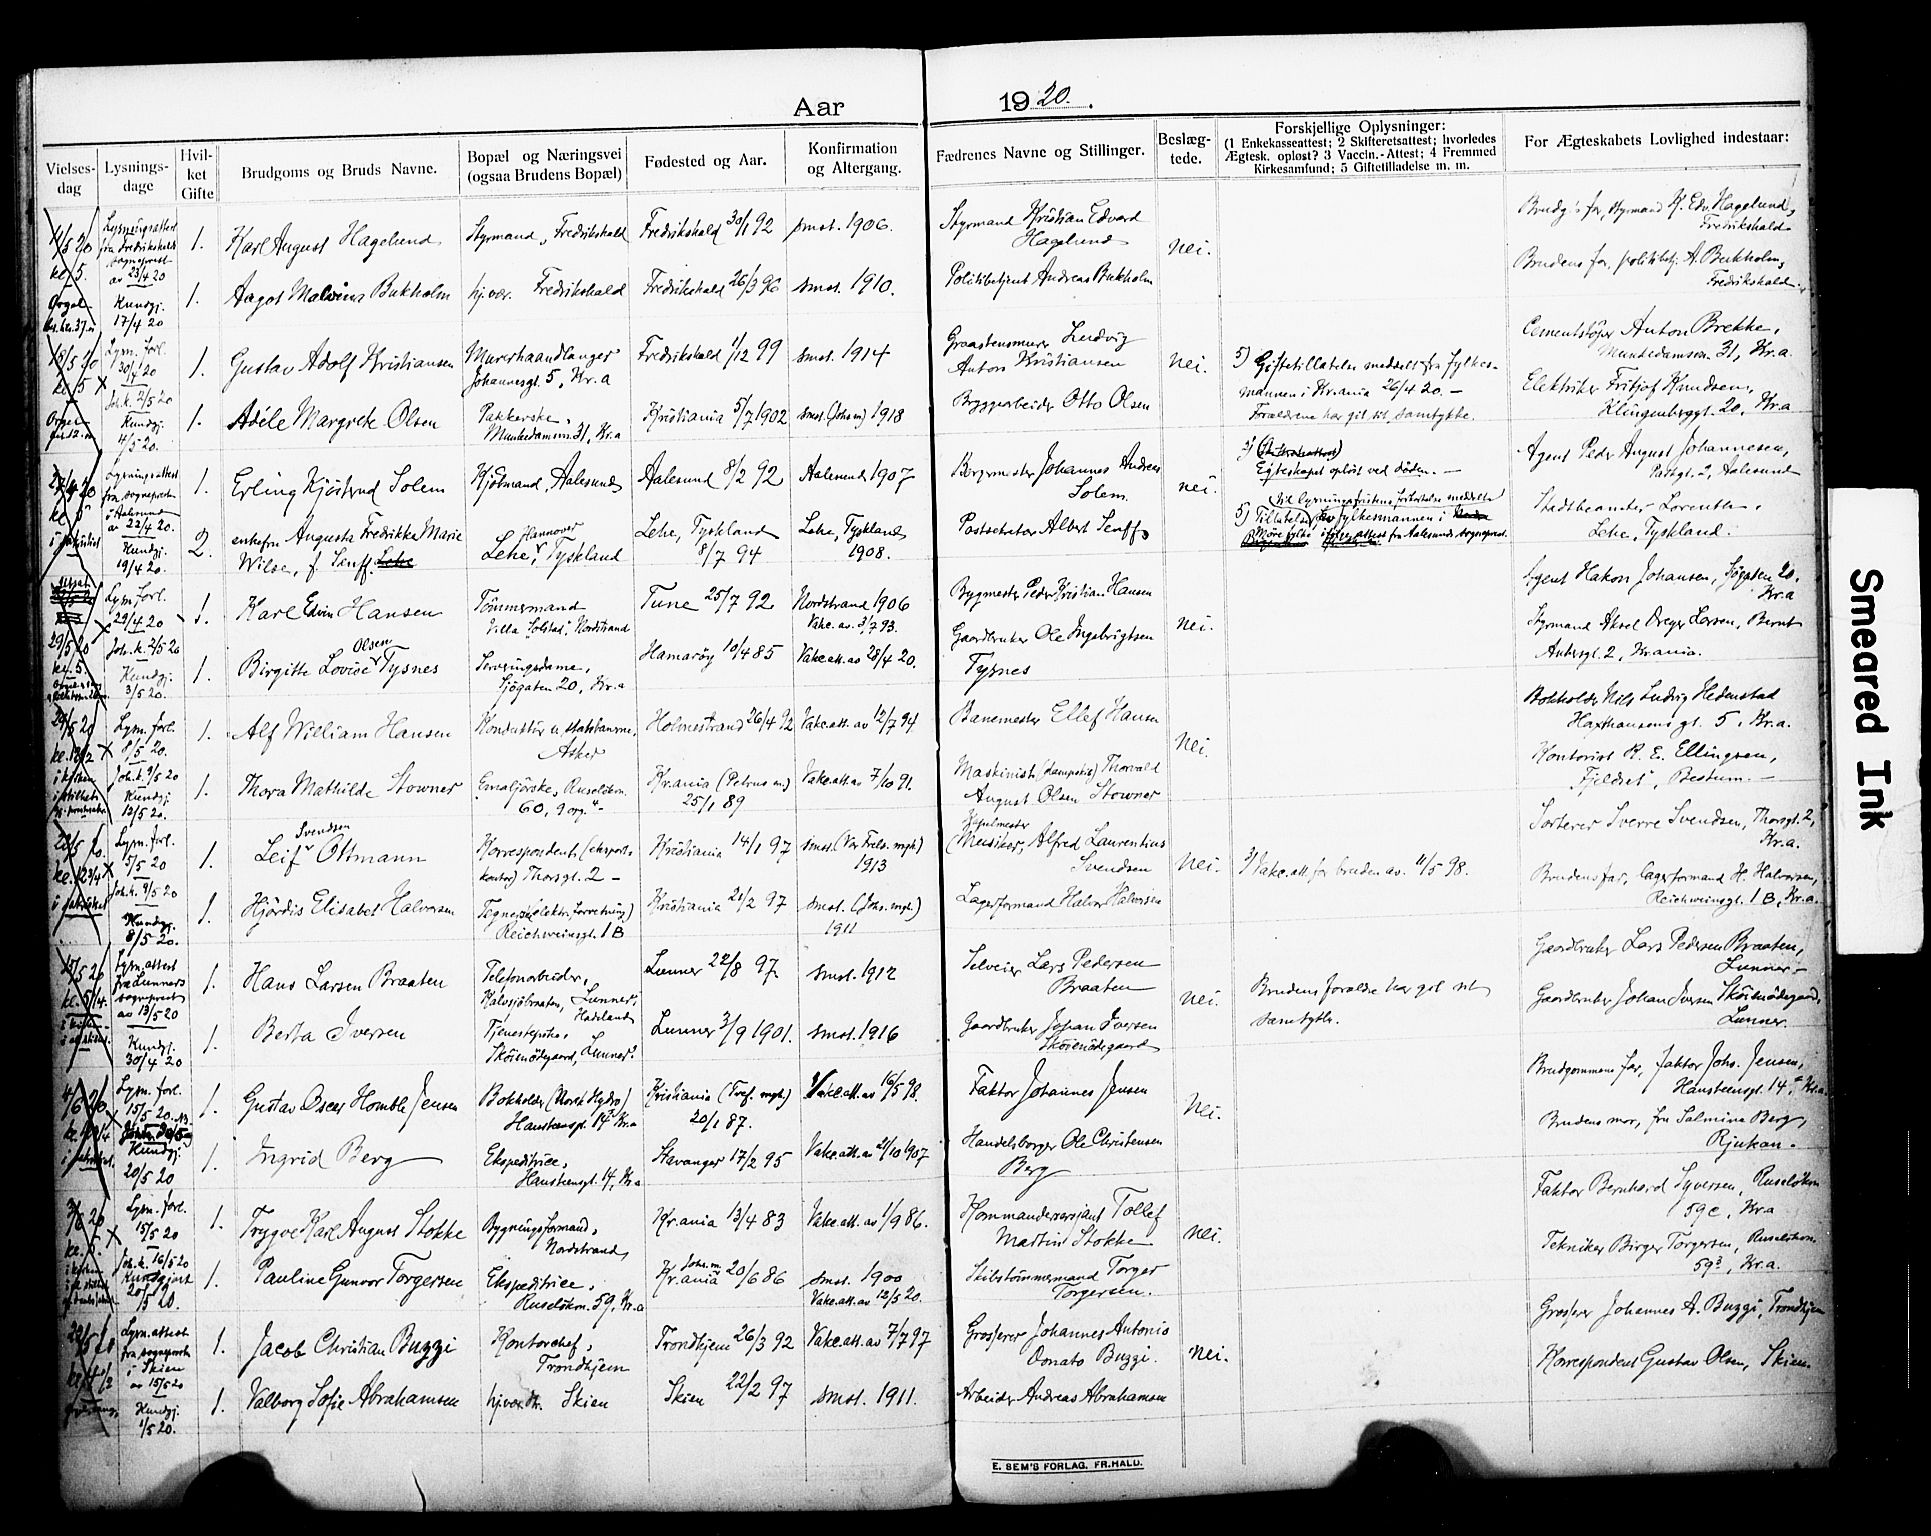 Aar 1920.
Vielses-dag
Lysnings-dage
Hvil-ket Gifte
Brudgoms og Bruds Navne.
Bopæl og Næringsvei (ogsaa Brudens Bopæl)
Fødested og Aar.
Konfirmation og Altergang.
Fædrenes Navne og Stillinger.
Beslæg-tede.
Forskjellige Oplysninger:
(1 Enkekasseattest; 2 Skifteretsattest; hvorledes
Ægtesk. opløst? 3 Vaccin.-Attest; 4 Fremmed
Kirkesamfund; 5 Giftetilladelse m. m.
For Ægteskabets Lovlighed indestaar:
1. Karl August Hagelund Styrmand, Fredrikshald Fredrikshald 30/1 92 smst. 1906. Styrmand Kristian Edvard Hagelund nei. Brudg's far, styrmand K. Edv. Hagelund, Fredrikshald
1. Aagot Malvina Bukholm hj.vær. Fredrikshald Fredrikshald 26/3 96 smst. 1910. Politibetjent Andreas Bukholm Brudens far, politibtj. A. Bukholm, Fredrikshald.
Kundgj. 17/4 20
1. Gustav Adolf Kristiansen Murerhaandlanger Johannesgt. 5, Kr.a Fredrikshald 1/12 99 smst. 1914 Graastensmurer Ludvig Anton Kristiansen nei. 5) Giftetillatelse meddelt fra fylkesmannen i Kr.ania 26/4 20. – Cementstøper Anton Brekke, Munkedamsvn 31, Kr.a.
1. Adèle Margrete Olsen Pakkerske, Munkedamsvn. 31, Kr.a Kristiania 5/7 1902 smst. (Johs m) 1918 Bryggearbeider Otto Olsen Forældrene har git sit samtykke. Elektriker Fritjof Knudsen, Klingenberggt. 20, Kr.a
Kundgj. 4/5 20.
1. Erling Kjöstrud Solem Kjöbmand, Aalesund Aalesund 8/2 92 Aalesund 1907 Borgermester Johannes Andreas Solem. nei. Egteskapet oplöst ved döden. – Agent Peder August Johannesen, Parkgt. 2, Aalesund
2. enkefru Augusta Fredrikka Marie Wilse, f. Senff Lehe, Hannover, Tyskland Lehe, Tyskland 8/7 94 Lehe, Tyskland 1908. Postsekretær Albert Senff 5) Tillatelse Stadtbeamter Lorentzen, Lehe, Tyskland.
Kundgj. 19/4 20.
1. Karl Edvin Hansen Tömmermand Villa "Solstad", Nordstrand Tune 25/7 92 Nordstrand 1906 Vakc. av. 3/7 93. Bygmester Peder Kristian Hansen nei. Agent Hakon Johansen, Sjögaten 20, Kr.a
1. Birgitte Lovise Olsen Tysnes Serveringsdame, Sjögaten 20, Kr.a Hamaröy 10/4 85 Vakc.att. av 28/4 20. Gaardbruker Ole Ingebrigtsen Tysnes Styrmand Aksel Dreyer Larsen, Bernt Ankersgt. 2, Kr.ania.
Kundgj. 3/5 20.
1. Alf William Hansen Konduktör v. statsbanerne, Asker Holmestrand 26/4 92 Vakc.att. av 12/7 94. Banemester Ellef Hansen nei. Bokholder Nils Ludvig Hedenstad Haxthausens gt. 5, Kr.a.
1. Thora Mathilde Stowner Ruselökvn. 60, Kr.ania (Petrus m) 25/1 89 Vakc.att. av 7/10 91. Maskinist Thorvald August Olsen Stowner Kontorist R. E. Ellingsen, "Fjeldset", Bestum. –
Kundgj. 12/5 20.
1. Leif Svendsen Ottmann Korrespondent (eksportkontor) Thorsgt. 2 – Kristiania 14/1 97 smst. (Vår Frels. mgh) 1913 Kapelmester Musiker, Alfred Laurentius Svendsen nei. 3) Vakc.att. for bruden av. 11/5 98. Sorterer Sverre Svendsen, Thorsgt. 2, Kr.a.
1. Hjördis Elisabet Halvorsen Tegnerske (elektr. forretning) Reichweinsgt. 1 B Kristiania 21/2 97 smst. (Johs. mgh.) 1911 Lagerformand Halvor Halvorsen Brudens far, lagerformand H. Halvorsen, Reichweinsgt. 1 B, Kr.a.
Kundgj. 8/5 20.
1. Hans Larsen Braaten Telefonarbeider, Kalvsjöbraaten, Lunner, Hadeland Lunner 22/8 97. smst. 1912 Selveier Lars Pedersen Braaten nei. Brudens forældre har git sit samtykke. Gaardbruker Lars Pedersen Braaten, Lunner –
1. Berta Iversen Tjenestepike, Sköienödegaard, Lunner. Lunner 3/9 1901. smst. 1916 Gaardbruker Johan Iversen Sköienödegaard Gaardbruker Johan Iversen Sköienödegaard, Lunner.
Kundgj. 30/4 20
1. Gustav Oscar Homble Jensen Bokholder (Norsk Hydro) Hansteensgt. 14, Kr.a Kristiania (Tref. mgh.) 20/1 87. Vakc.att. av 16/5 98. Faktor Johannes Jensen nei. Brudgommens far, faktor Johs. Jensen, Hansteensgt. 14, Kr.a.
1. Ingrid Berg Ekspeditrice, Hansteensgt. 14, Kr.a Stavanger 17/2 95 Vakc.att. av 21/10 1907 Handelsborger Ole Christensen Berg Brudens mor, fru Salmina Berg, Rjukan.
Kundgj. 20/5 20
1. Trygve Karl August Stokke Bygningsformand, Nordstrand Kr.ania 13/4 83 Vakc.att. av 1/9 86. Kommandersersjant Tollef Martin Stokke nei. Faktor Bernhard Syversen, Ruselökvn 59c, Kr.a
1. Pauline Gunvor Torgersen Ekspeditrice, Ruselökvn. 59, Kr.a Kr.ania Johs. m. 20/6 86 smst. 1900 Vakc.att. av 12/5 20. Skibstömmermand Torger Torgersen. Tekniker Birger Torgersen, Ruselökvn. 59, Kr.a.
1. Jacob Christian Buzzi Kontorchef, Trondhjem Trondhjem 26/3 92 Vakc.att. av 7/7 97 Grosserer Johannes Antonio Donato Buzzi. nei. Grosserer Johannes A. Buzzi, Trondhjem
1. Valborg Sofie Abrahamsen hj.vær. Skien Skien 22/2 97 smst. 1911. Arbeider Andreas Abrahamsen Korrespondent Gustav Olsen, Skien
Kundgj. 1/5 20.
E. SEM'S FORLAG. FR.HALD.
Smeared Ink